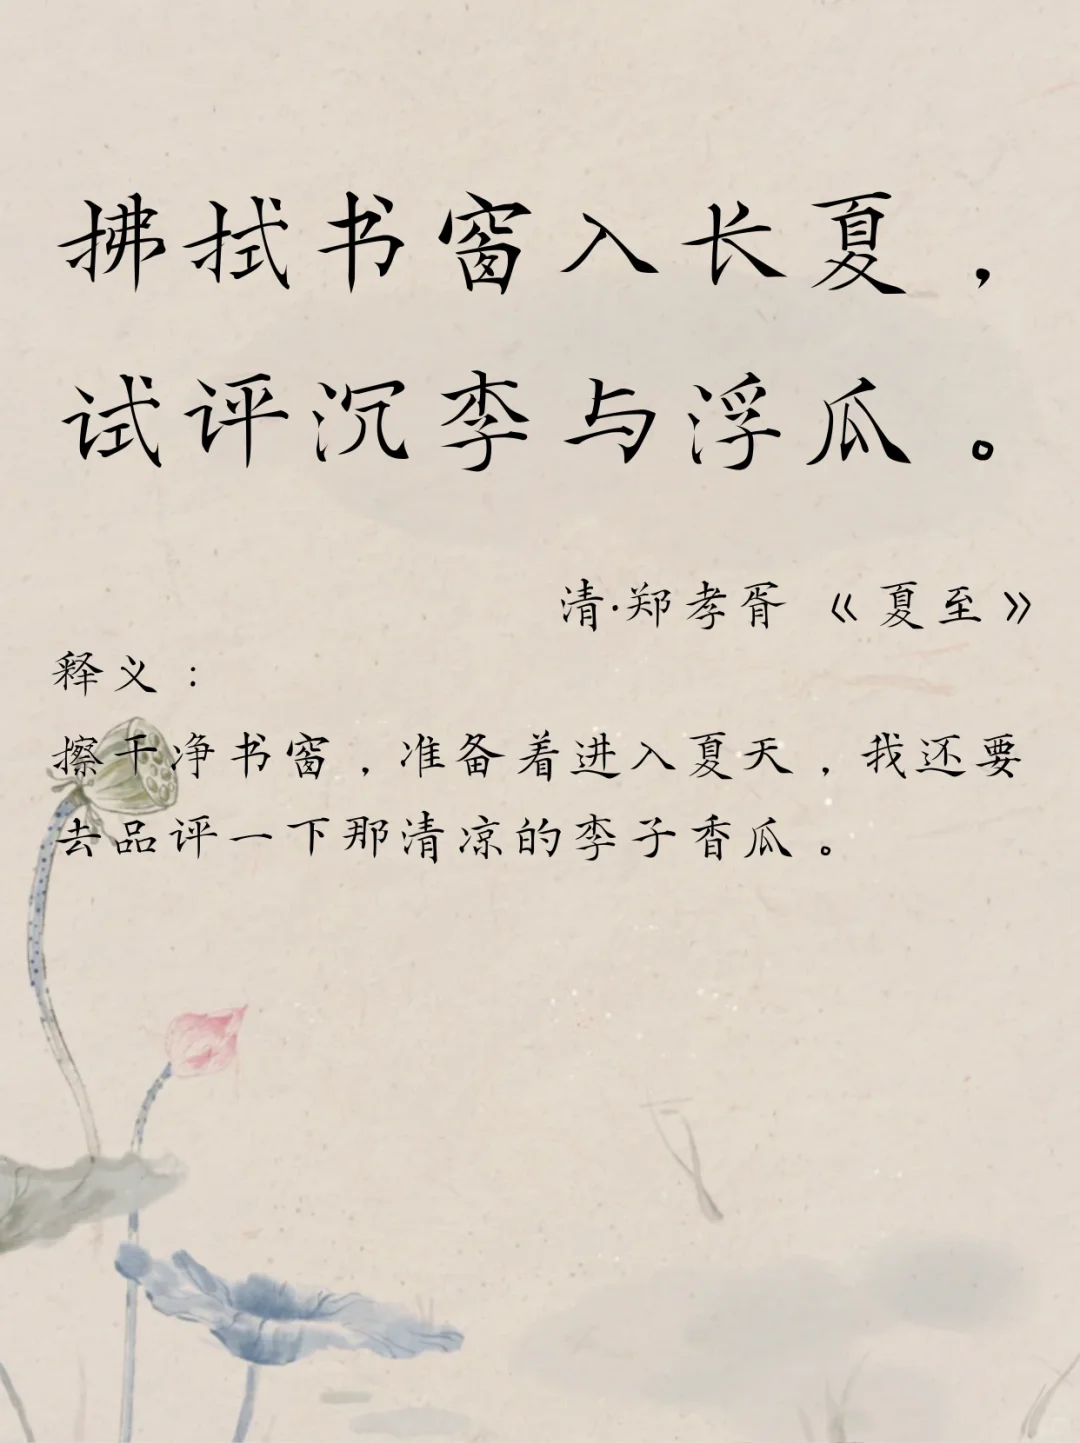 拂拭书窗入长夏，
试评沉李与浮瓜。
清·郑孝胥《夏至》
释义：
擦干净书窗，准备着进入夏天，我还要
去品评一下那清凉的李子香瓜。